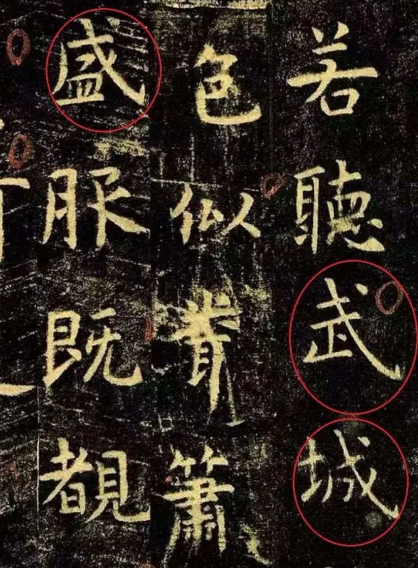 若聽武城
色似聞簫
盛服既覩